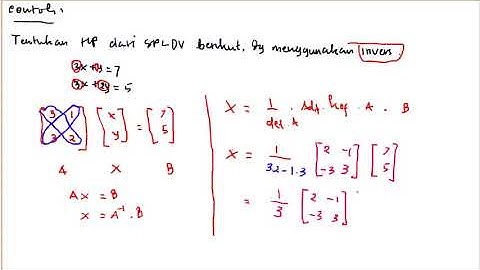 Contoh:
Tentukan HP dari SPLDV berikut, dg menggunakan invers.
3x+1y=7
3x+2y=5
[3 1
3 2] [x
y] = [7
5]
A X B
AX = B
X = A⁻¹ . B
X = 1/det.A . Adj. A . B
X = 1/3.2-1.3 [2 -1
-3 3] [7
5]
= 1/3 [2 -1
-3 3]